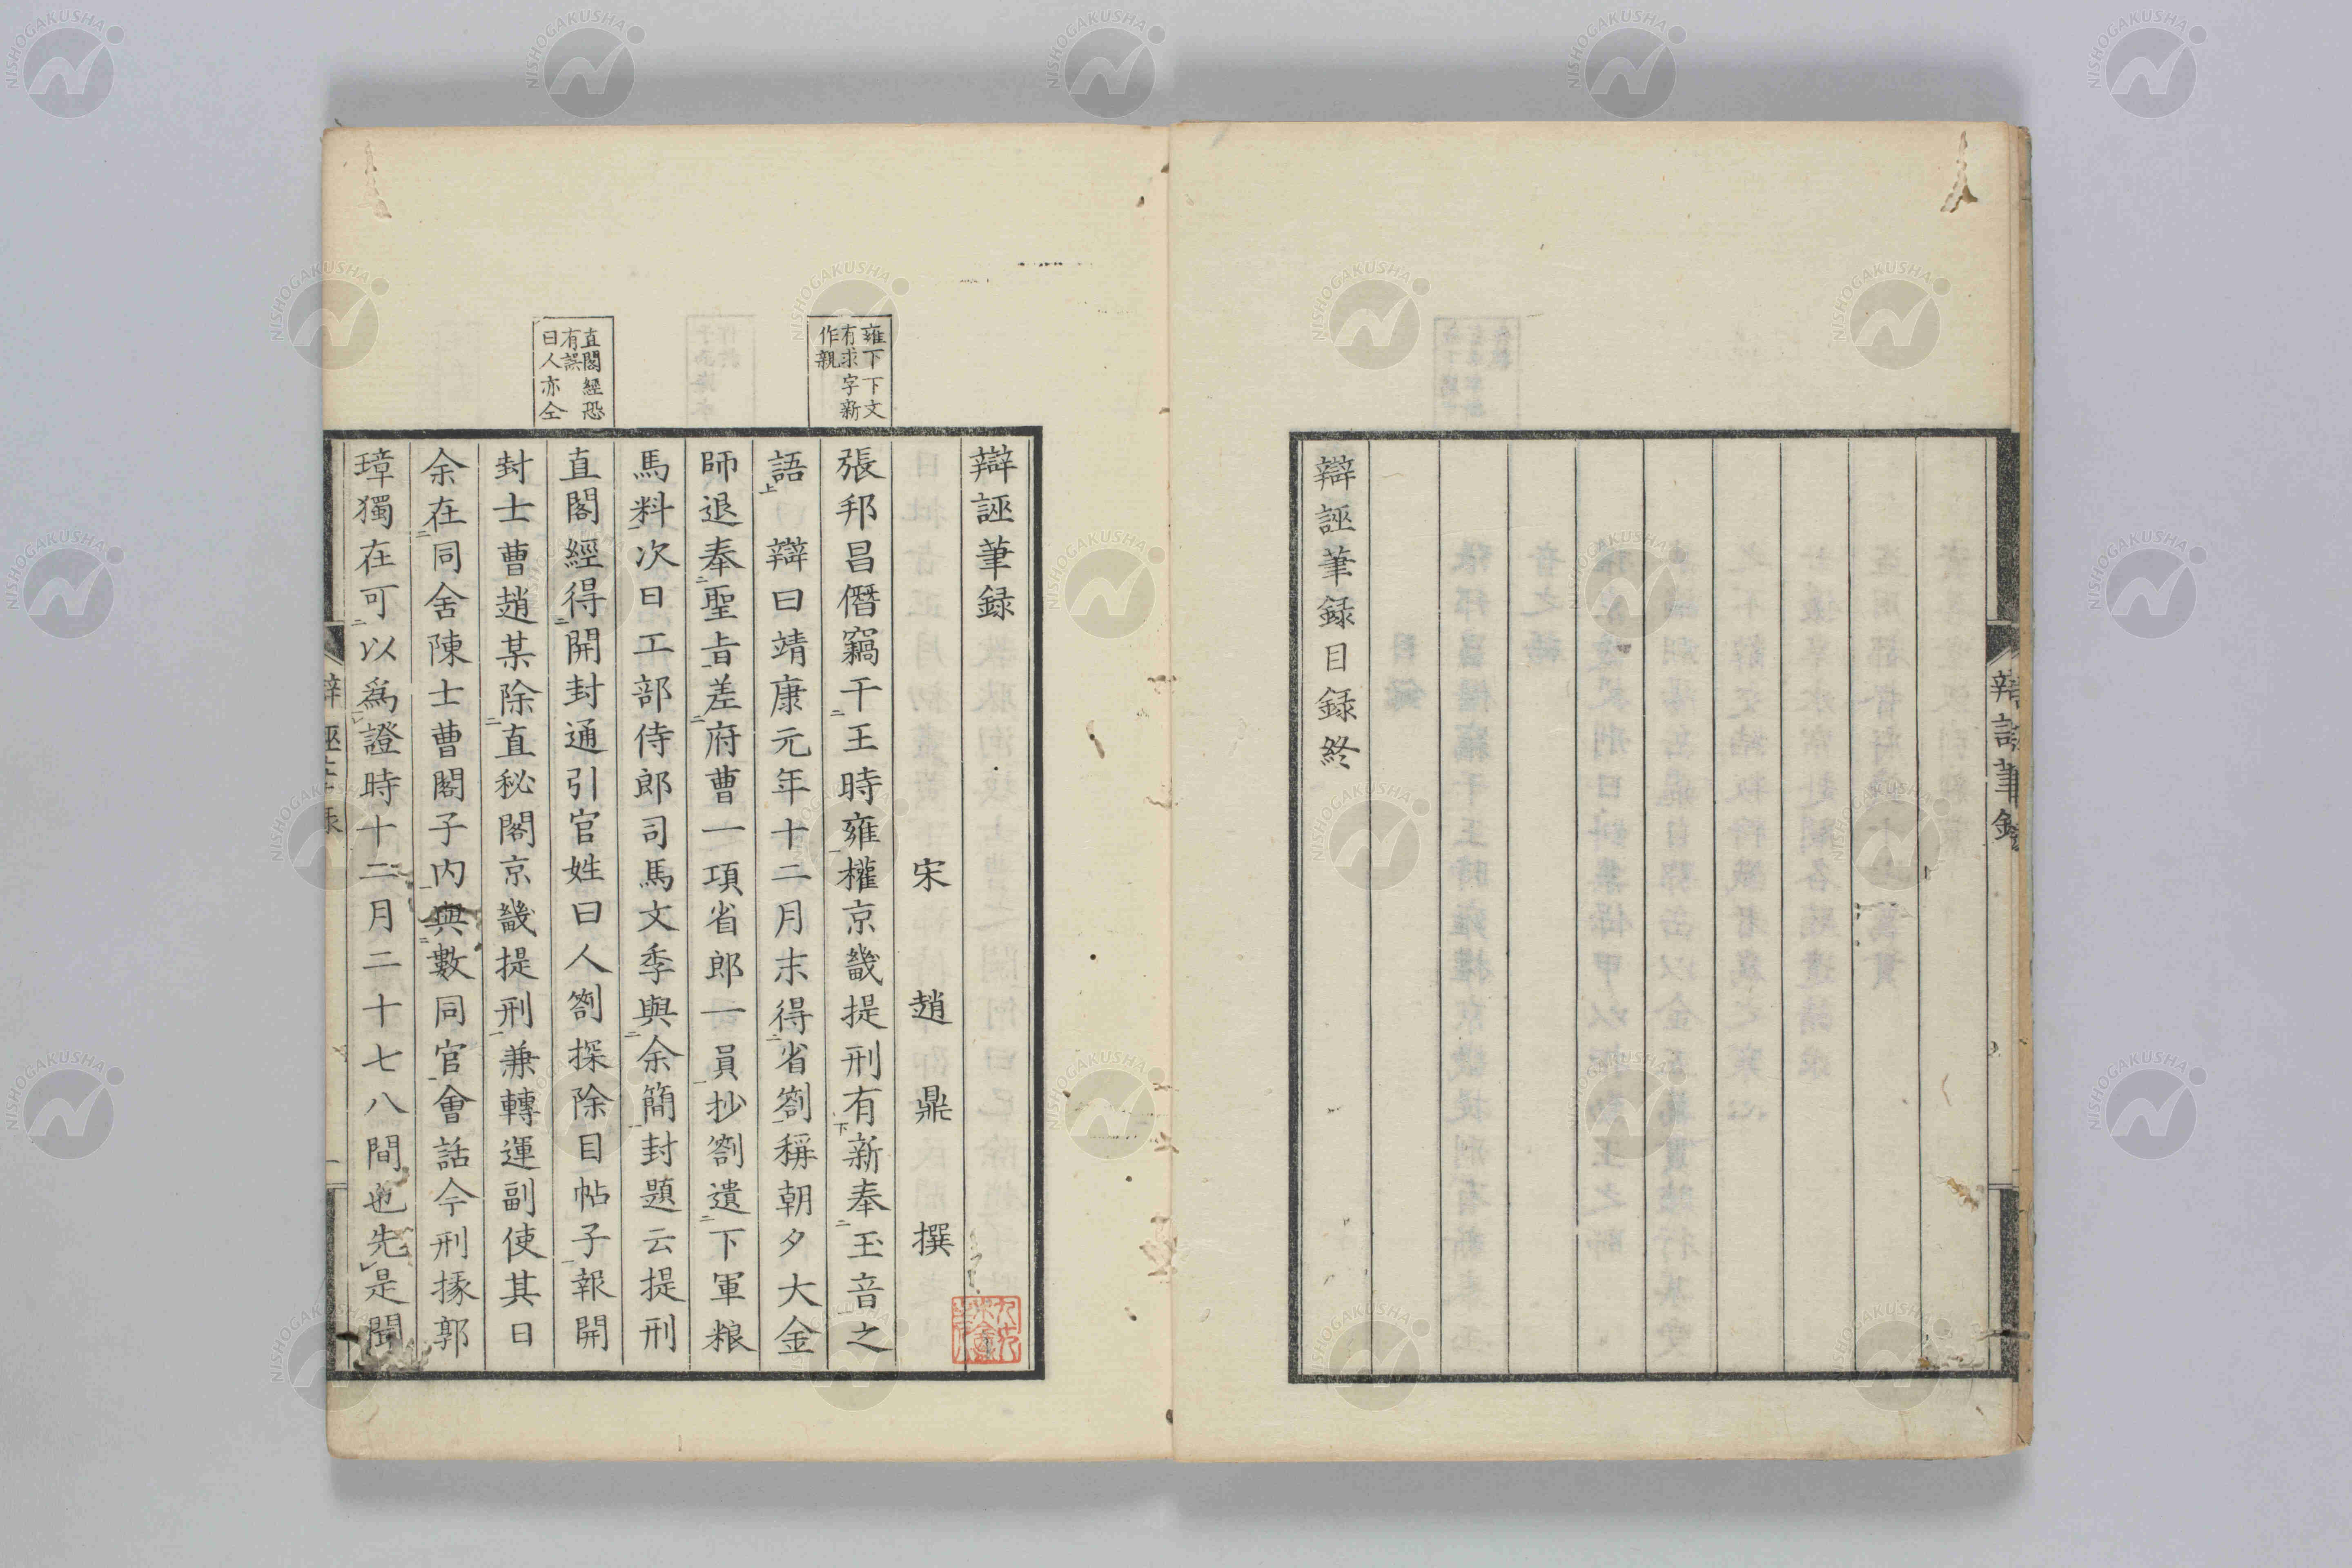 辯誣筆錄
辯誣筆録目録終
雍下下文
有求字新
作親
直閣經恐
有誤
曰人亦仝
辯誣筆録
宋 趙鼎 撰
張邦昌僭竊干王時雍權京畿提刑有新奉玉音之
語 辯曰靖康元年十二月末得省劄稱朝夕大金
師退奉聖旨差府曹一項省郎一員抄劄遺下軍粮
馬料次日工部侍郎司馬文季與余簡封題云提刑
直閣經得開封通引官姓曰人劄探除目帖子報開
封士曹趙某除直秘閣京畿提刑兼轉運副使其日
余在同舍陳士曹閣子内與數同官會話今刑掾郭
璋獨在可以為證時十二月二十七八間也先是聞
NISHOGAKUSHA